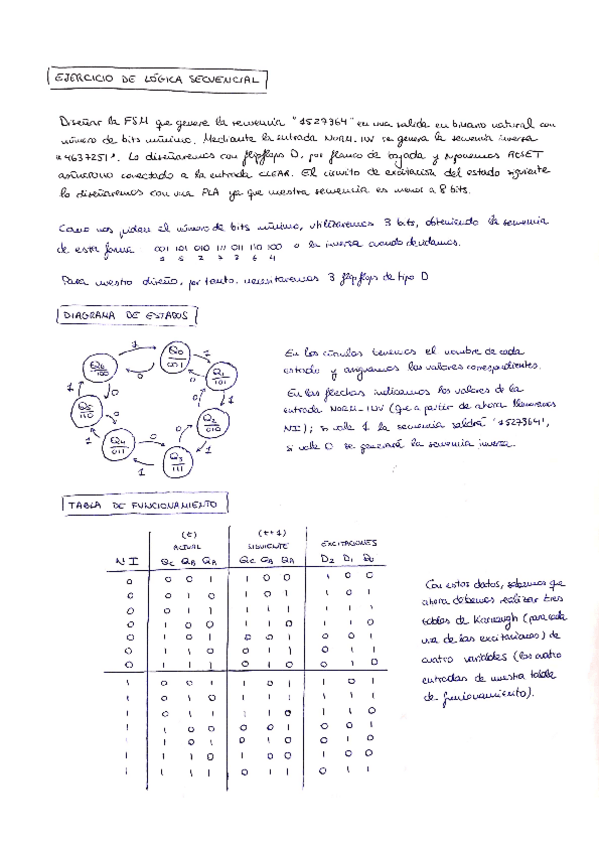 EJERCICIO DE LÓGICA SECUENCIAL
Diseñar la FSM que genere la secuencia "1527364" en una salida en binario natural con
número de bits mínimo. Mediante la entrada NORM_INV se genera la secuencia inversa
"4637251". Lo diseñaremos con flipflops D, por flanco de bajada y suponemos RESET
asíncrono conectado a la entrada CLEAR. El circuito de excitación del estado siguiente
lo diseñaremos con una PLA ya que nuestra secuencia es menor a 8 bits.
Como nos piden el número de bits mínimo, utilizaremos 3 bits, obteniendo la secuencia
de esta forma: 001 101 010 111 011 110 100 o la inversa cuando debamos.
1 5 2 7 3 6 4
Para nuestro diseño, por tanto, necesitaremos 3 flipflops de tipo D
DIAGRAMA DE ESTADOS
Q0 001
Q1 101
Q2 010
Q3 111
Q4 011
Q5 110
Q6 100
1 1 1 1 1 1 1
0 0 0 0 0 0 0
En los círculos tenemos el nombre de cada
estado y asignamos los valores correspondientes.
En las flechas indicamos los valores de la
entrada NORM_INV (que a partir de ahora llamaremos
NI); si vale 1 la secuencia saldrá "1527364",
si vale 0 se generará la secuencia inversa.
TABLA DE FUNCIONAMIENTO
(t) (t+1)
ACTUAL SIGUIENTE EXCITACIONES
NI QC QB QA QC QB QA D2 D1 D0
0 0 0 1 1 0 0 1 0 0
0 0 1 0 1 0 1 1 0 1
0 0 1 1 1 1 1 1 1 1
0 1 0 0 1 1 0 1 1 0
0 1 0 1 0 0 1 0 0 1
0 1 1 0 0 1 1 0 1 1
0 1 1 1 0 1 0 0 1 0
1 0 0 1 1 0 1 1 0 1
1 0 1 0 1 1 1 1 1 1
1 0 1 1 1 1 0 1 1 0
1 1 0 0 0 0 1 0 0 1
1 1 0 1 0 1 0 0 1 0
1 1 1 0 1 0 0 1 0 0
1 1 1 1 0 1 1 0 1 1
Con estos datos, sabemos que
ahora debemos realizar tres
tablas de Karnaugh (para cada
una de las excitaciones) de
cuatro variables (las cuatro
entradas de nuestra tabla
de funcionamiento).